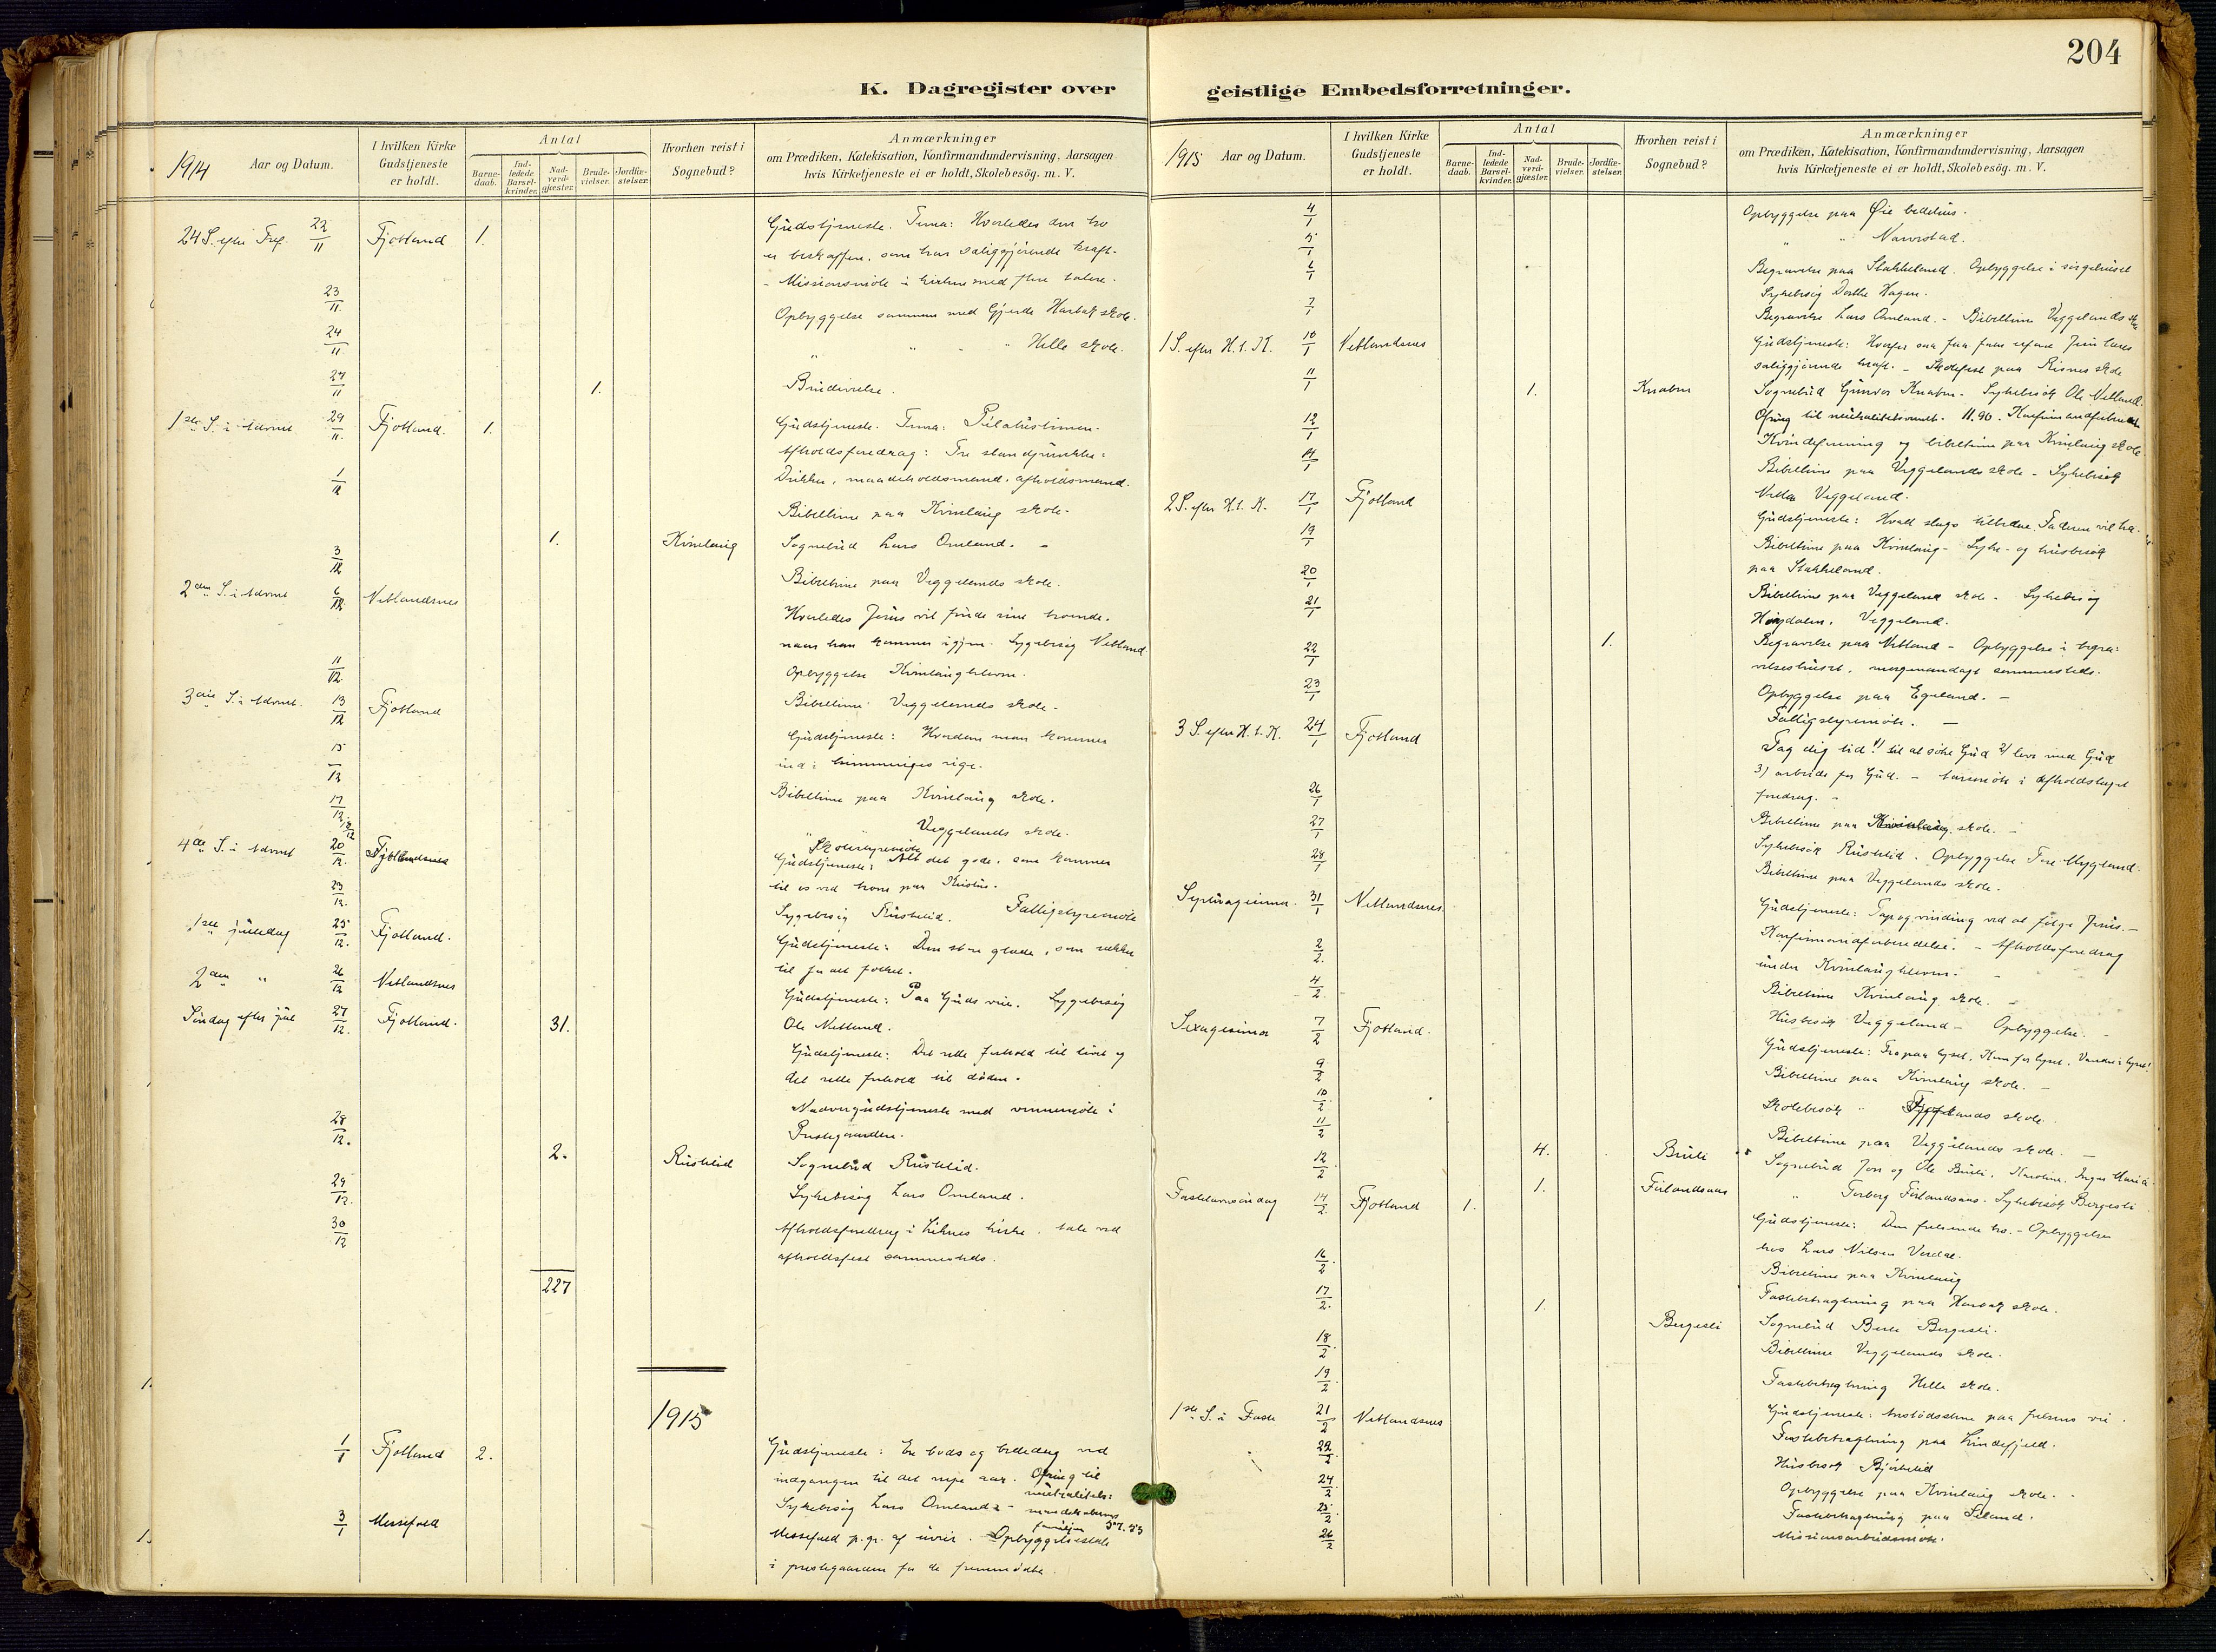 204
K. Dagregister over geistlige Embedsforretninger.
1914 Aar og Datum.
I hvilken Kirke Gudstjeneste er holdt.
Antal
Barne-daab.
Ind-ledede Barsel-kvinder.
Nad-verd-gjæster.
Brude-vielser.
Jordfæ-stelser.
Hvorhen reist i Sognebud?
Anmærkninger
om Prædiken, Katekisation, Konfirmandundervisning, Aarsagen
hvis Kirketjeneste ei er holdt, Skolebesög. m. V.
24 S. efter Tref. 22/11 Fjotland 1. Gudstjeneste. Tema: Hvorledes den tro
er beskaffen, som har saliggjörende kraft.
- Missionsmöte i kirken med flere talere.
23/11. Opbyggelse sammen med Gjerde Harbak skole.
24/11 " " " Helle skole.
27/11 1. Brudevielse.
1ste S. i Advent 29/11. Fjotland. 1. Gudstjeneste. Tema:
Afholdsforedrag: Tre standpunkter:
Drikker, maadeholdsmand, afholdsmand.
1/12 Bibeltime paa Kvinlaug skole.
3/12 1. Kvinlaug Sognebud Lars Omland.
Bibeltime paa Veggelands skole.
2den S. i Advent 6/12. Netlandsnes Hvorledes Jesus vil finde sine troende,
naar han kommer igjen. Sygebesög Netland
11/12. Opbyggelse
3die S. i Advent. 13/12 Fjotland Bibeltime Veggelands skole.
Gudstjeneste: Hvordan man kommer
ind i himmeriges rige.
15/12 Bibeltime paa Kvinlaug skole.
17/12. " Veggelands skole.
18/12 Skolestyremöte
4de S. i Advent 20/12. Gudstjeneste: Alt det gode, som kommer
til os ved troen paa Kristus.
23/12. Sygebesög Rusklid. Fattigstyremöte
1ste juledag 25/12. Fjotland. Gudstjeneste: Den store glæde, som rækker
til for alt folket.
2den " 26/12 Netlandsnes Gudstjeneste: Paa Guds veie. Sygebesög
Ole Netland.
Söndag efter jul 27/12. Fjotland. 31. Gudstjeneste: Det rette forhold til livet og
det rette forhold til döden.
Nadvergudstjeneste med vennemöte i
28/12. Prestegaarden.
2. Rusklid Sognebud Rusklid.
29/12. Sykebesög Lars Omland.
30/12 Afholdsforedrag i Liknes kirke. tale ved
afholdsfest sammesteds.
227
1915
1/1 Fjotland 2. Gudstjeneste: En bods og bededag ved
indgangen til det nye aar. Ofring til
nöitralitets:
Sykebesög Lars Omland. -
37.53
3/1 Messefald Messefald p. gr. af uveir. Opbyggelsestale
i prestegaarden for de fremmödte.
1915 Aar og Datum.
I hvilken Kirke Gudstjeneste er holdt.
Antal
Barne-daab.
Ind-ledede Barsel-kvinder.
Nad-verd-gjæster.
Brude-vielser.
Jordfæ-stelser.
Hvorhen reist i Sognebud?
Anmærkninger
om Prædiken, Katekisation, Konfirmandundervisning, Aarsagen
hvis Kirketjeneste ei er holdt, Skolebesög. m. V.
4/1 Opbyggelse paa Öie bedehus.
5/1 " " Narvestad.
6/1 Begravelse paa Stakkeland. Opbyggelse i sörgehuset
Sykebesög Dorthe Hagen.
7/1 Begravelse Lars Omland. - Bibeltime Veggelands sk
1 S. efter H. t. K. 10/1 Netlandsnes Gudstjeneste: Hvorfor saa faa faar erfare Jesu læres
saliggjörende kraft. - Skolefest paa Risnes skole
11/1 1. Knaben Sognebud Gunvor Knaben. Sykebesök Ole Netland.
12/1 Ofring til 11.90. Konfirmandforberedelse
Kvindeforening og bibeltime paa Kvinlaug skole
14/1 Bibeltime paa Veggelands skole - Sykebesök
Veggeland.
2 S. efter H. t. K. 17/1 Fjotland Gudstjeneste: Hvad slags tilbedere Faderen vil ha.
19/1 Bibeltime paa Kvinlaug - Syke- og husbesök
paa Stakkeland.
20/1 Bibeltime paa Veggeland skole - Sykebesög
21/1 Veggeland.
22/1 1. Begravelse paa Netland - Opbyggelse i begra:
velseshuset, sammesteds.
23/1 Opbyggelse paa Egeland. -
Fattigstyremöte. -
3 S. efter H. t. K. 24/1 Fjotland Tag dig tid! 1) til at söke Gud 2) leve med Gud
3) arbeide for Gud. - Aarsmöte i afholdslaget
foredrag. -
26/1 Bibeltime paa Kvinlaug skole. -
27/1 Sykebesök Rusklid. Opbyggelse Tore Mygland.
28/1 Bibeltime paa Veggelands skole.
Septuagesima. 31/1 Netlandsnes. Gudstjeneste: Tap og vinding ved at fölge Jesus. -
2/2. Konfirmandforberedelse. - Afholdsforedrag
under
4/2 Bibeltime Kvinlaug skole. -
Husbesök Veggeland - Opbyggelse. -
Sexagesima 7/2 Fjotland. Gudstjeneste: Tro paa lyset, Kom for lyset, Vandre i lyset!
9/2 Bibeltime paa Kvinlaug skole. -
10/2 Skolebesök " skole.
11/2 Bibeltime paa Veggelands skole. -
12/2 4. Buli Sognebud Jon og Ole Buli, Karoline, Inger Maria
1. Förlandsaas " Torborg Förlandsaas. Sykebesök Bergesli
Fastelavnsöndag 14/2. Fjotland 1. Gudstjeneste: Den frelsende tro. - Opbyggelse
hos Lars Nilsen Verdal.
16/2. Bibeltime paa Kvinlaug
17/2. Fastebetragtning paa Harbak skole.
1. Bergesli Sognebud Berte Bergesli.
18/2. Bibeltime Veggelands skole.
19/2. Fastebetragtning Helle skole.
1ste S. i Faste 21/2 Netlandsnes Gudstjeneste: Anstödsstene paa frelsens vei.
22/2. Fastebetragtning paa Lindefjeld.
Husbesök Björkelid
24/2. Opbyggelse paa Kvinlaug skole.
25/2. Fastebetragtning paa Seland.
26/2 Missionsarbeidsmöte.